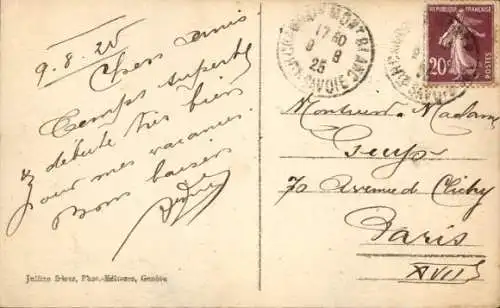 9.8.25
Chers amis
Temps superbe
débute très bien
pour mes vacances.
Bons baisers
CHAMONIX MONT BLANC
17 30
9 8
25
HTE SAVOIE
RÉPUBLIQUE FRANÇAISE
20c
POSTES
Monsieur & Madame
70 Avenue de Clichy
Paris
XVII
Jullien frères, Phot.-Editeurs, Genève